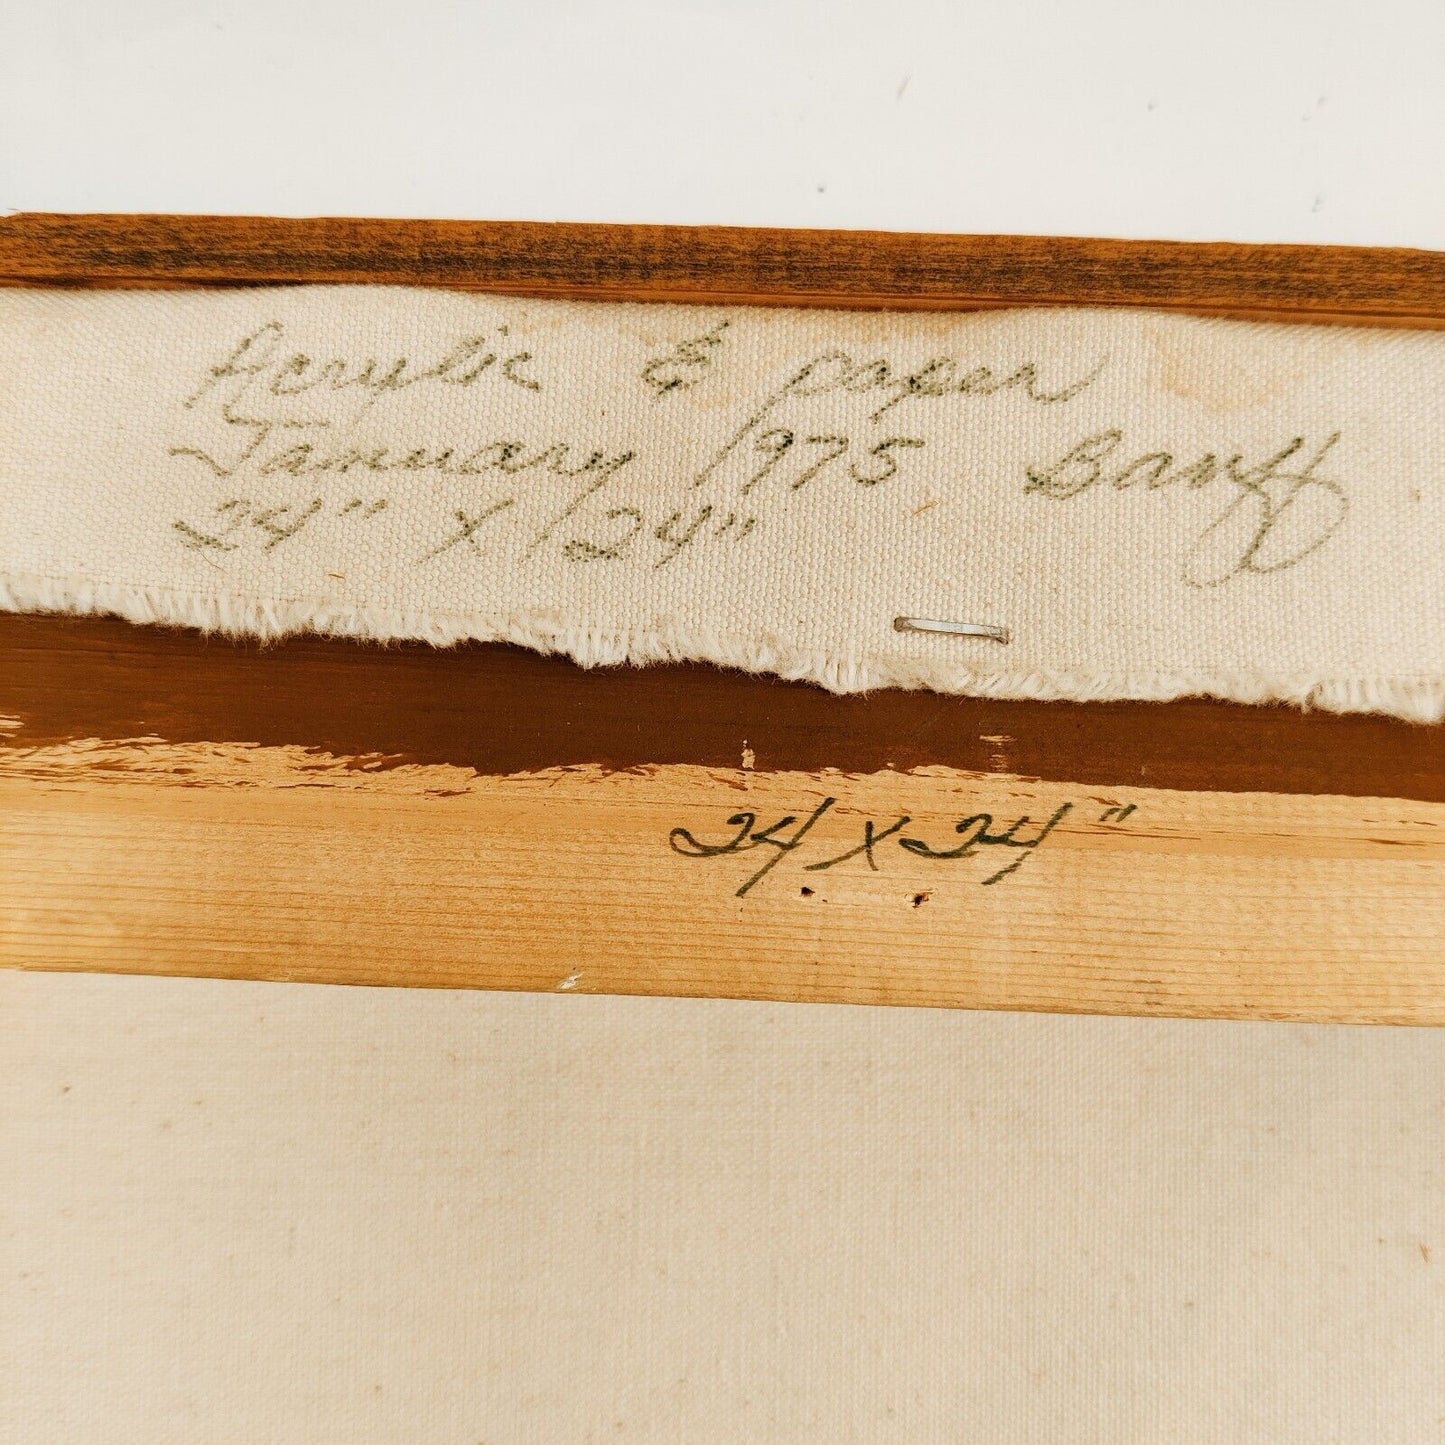 Acrylic & paper
January 1975 Banff
24" x 24"
24 x 24"